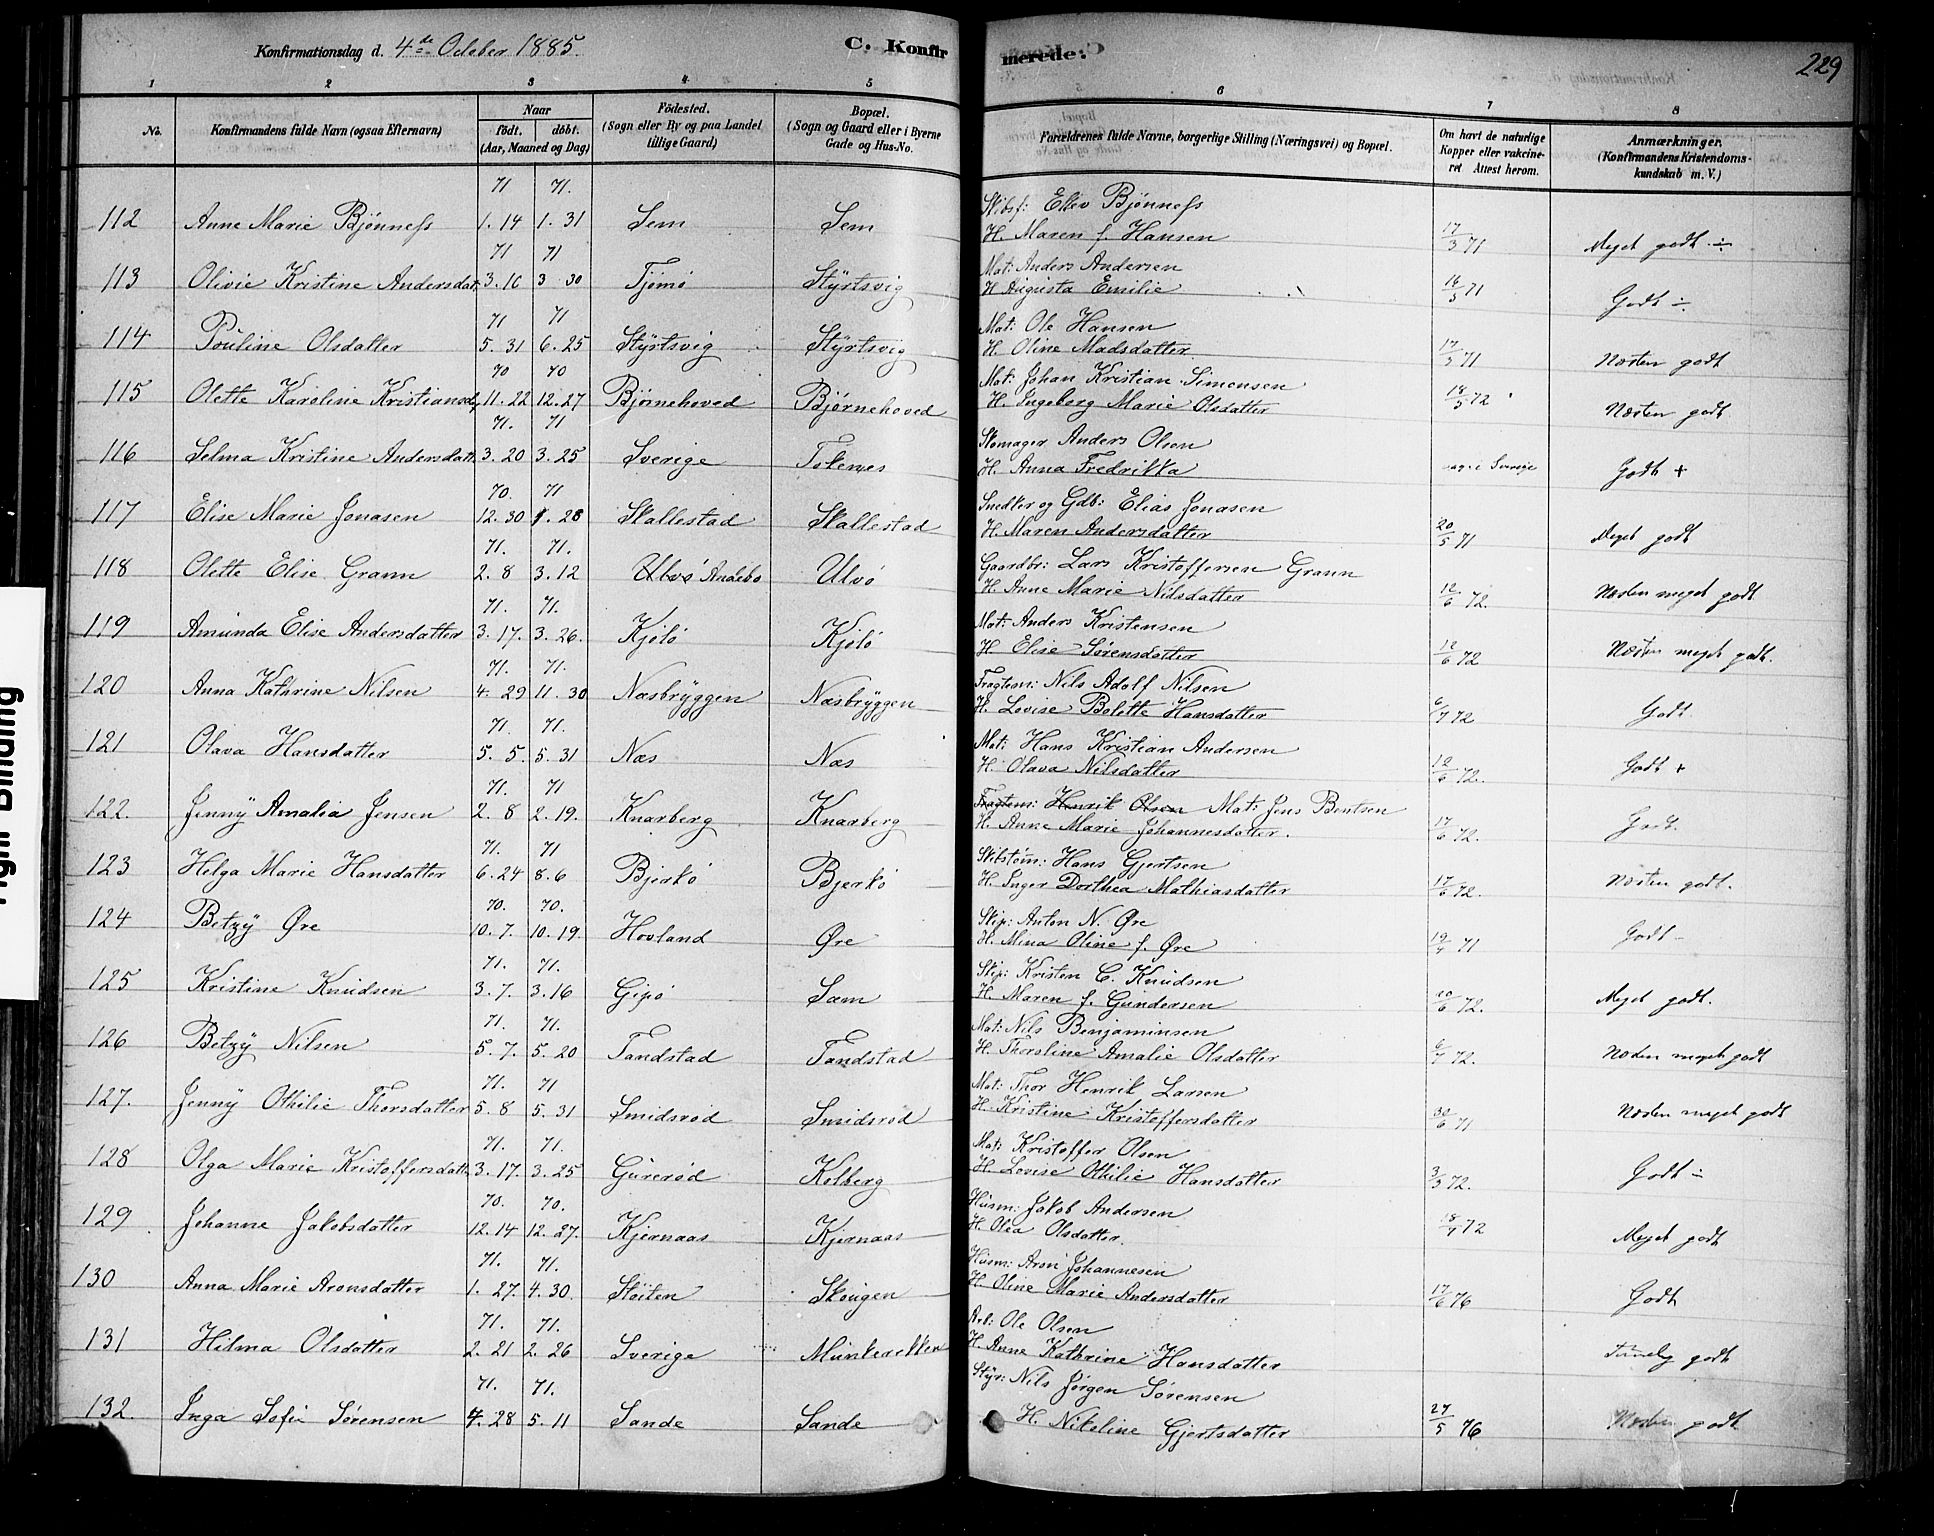 Konfirmationsdag d. 4de October 1885.
C. Konfirmerede:
229
1 2 3 4 5 6 7 8
No. Konfirmandens fulde Navn (ogsaa Efternavn) Naar födt. döbt. (Aar, Maaned og Dag) Födested. (Sogn eller By og paa Landet tillige Gaard) Bopæl. (Sogn og Gaard eller i Byerne Gade og Hus-No. Forældrenes fulde Navne, borgerlige Stilling (Næringsvei) og Bopæl. Om havt de naturlige Kopper eller vakcineret Attest herom. Anmærkninger. (Konfirmandens Kristendomskundskab m. V.)
71 71. Skibsf: Ellev Bjönness
112 Anne Marie Bjönness 1. 14 1. 31 Sem Sem H. Maren f. Hansen 17/3 71 Meget godt ÷
71 71 Mat: Anders Andersen
113 Olivie Kristine Andersdat. 3. 16 3 30 Tjömö Styrtsvig H Augusta Emilie 16/5 71 Godt ÷
71 71 Mat: Ole Hansen
114 Pouline Olsdatter 5. 31 6. 25 Styrtsvig Styrtsvig H. Oline Madsdatter 17/5 71 Næsten godt
70 70 Mat: Johan Kristian Simensen
115 Olette Karoline Kristiansd. 11. 22 12. 27 Bjørnehoved Bjørnehoved H. Ingeborg Marie Olsdatter 18/5 72 Næsten godt
71. 71 Skomager Anders Olsen
116 Selma Kristine Andersdatt. 3. 20 3. 25 Sverige Tokenes H. Anna Fredrikka i Sverige Godt +
70. 71 Snedker og Gdb: Elias Jonasen
117 Elise Marie Jonasen 12. 30 1. 28 Skallestad Skallestad H. Maren Andersdatter 20/5 71 Meget godt
71. 71. Gaardbr: Lars Kristoffersen Grann
118 Olette Elise Grann 2. 8 3. 12 Ulvö Andebo Ulvö H. Anne Marie Nilsdatter 12/6 72. Næsten meget godt
71. 71. Mat: Anders Kristensen
119 Amunda Elise Andersdatter 3. 17. 3. 26. Kjölö Kjölö H Elise Sörensdatter 12/6 72 Næsten meget godt.
71. 71. Fragtem: Nils Adolf Nilsen
120 Anna Kathrine Nilsen 4. 29 11. 30 Næsbryggen Næsbryggen H. Lovise Bolette Hansdatter 6/7 72 Godt
71. 71. Mat: Hans Kristian Andersen
121 Olava Hansdatter 5. 5. 5. 31 Næs Næs H. Olava Nilsdatter 12/6 72. Godt +
71. 71 Fragtem: Henrik Olsen Mat: Jens Bentsen
122. Jenny Amalia Jensen 2. 8 2. 19. Knarberg Knarberg H. Anne Marie Johannesdatter. 17/6 72. Godt.
71. 71 Skibstöm: Hans Gjertsen
123 Helga Marie Hansdatter 6. 24 8. 6 Bjerkö Bjerkö H. Inger Dorthea Mathiasdatter 17/6 72. Næsten godt.
70. 70. Skip: Anton N. Øre
124 Betzy Øre 10. 7. 10. 19. Hovland Øre H. Mina Oline f. Øre 19/4 71 Godt
71. 71. Skip: Kristen C. Knudsen
125 Kristine Knudsen 3. 7. 3. 16 Gipö Sæm H. Maren f. Gundersen 20/6 72. Meget godt.
71. 71. Mat: Nils Benjaminsen
126 Betzy Nilsen 5. 7. 5. 20 Tandstad Tandstad H. Thorsline Amalie Olsdatter 6/7 72. Næsten meget godt
71. 71 Mat: Thor Henrik Larsen
127. Jenny Othilie Thorsdatter 5. 8 5. 31 Smidsröd Smidsröd H. Kristine Kristoffersdatter 30/6 71 Næsten meget godt
71. 71. Mat: Kristoffer Olsen
128 Olga Marie Kristoffersdatt. 3. 17. 3. 25 Gureröd Kolberg H. Lovise Othilie Hansdatter 3/5 72. Godt ÷
70. 70. Husm: Jakob Andersen
129 Johanne Jakobsdatter 12. 14 12. 27. Kjernaas Kjernaas H. Olea Olsdatter. 18/7 72 Meget godt
71. 71. Husm: Aron Johannesen
130 Anna Marie Aronsdatter 1. 27. 4. 30. Stöiten Skougen H. Oline Marie Andersdatter 17/6 76 Godt
71. 71. Arb: Ole Olsen
131 Hilma Olsdatter 2. 21 2. 26 Sverige Munkerekken H. Anne Kathrine Hansdatter Temelig godt
71. 71. Styr: Nils Jörgen Sörensen
132. Inga Sofie Sörensen 4. 28 5. 11 Sande Sande H. Nikoline Gjertsdatter 27/5 76 Næsten godt
Right Binding